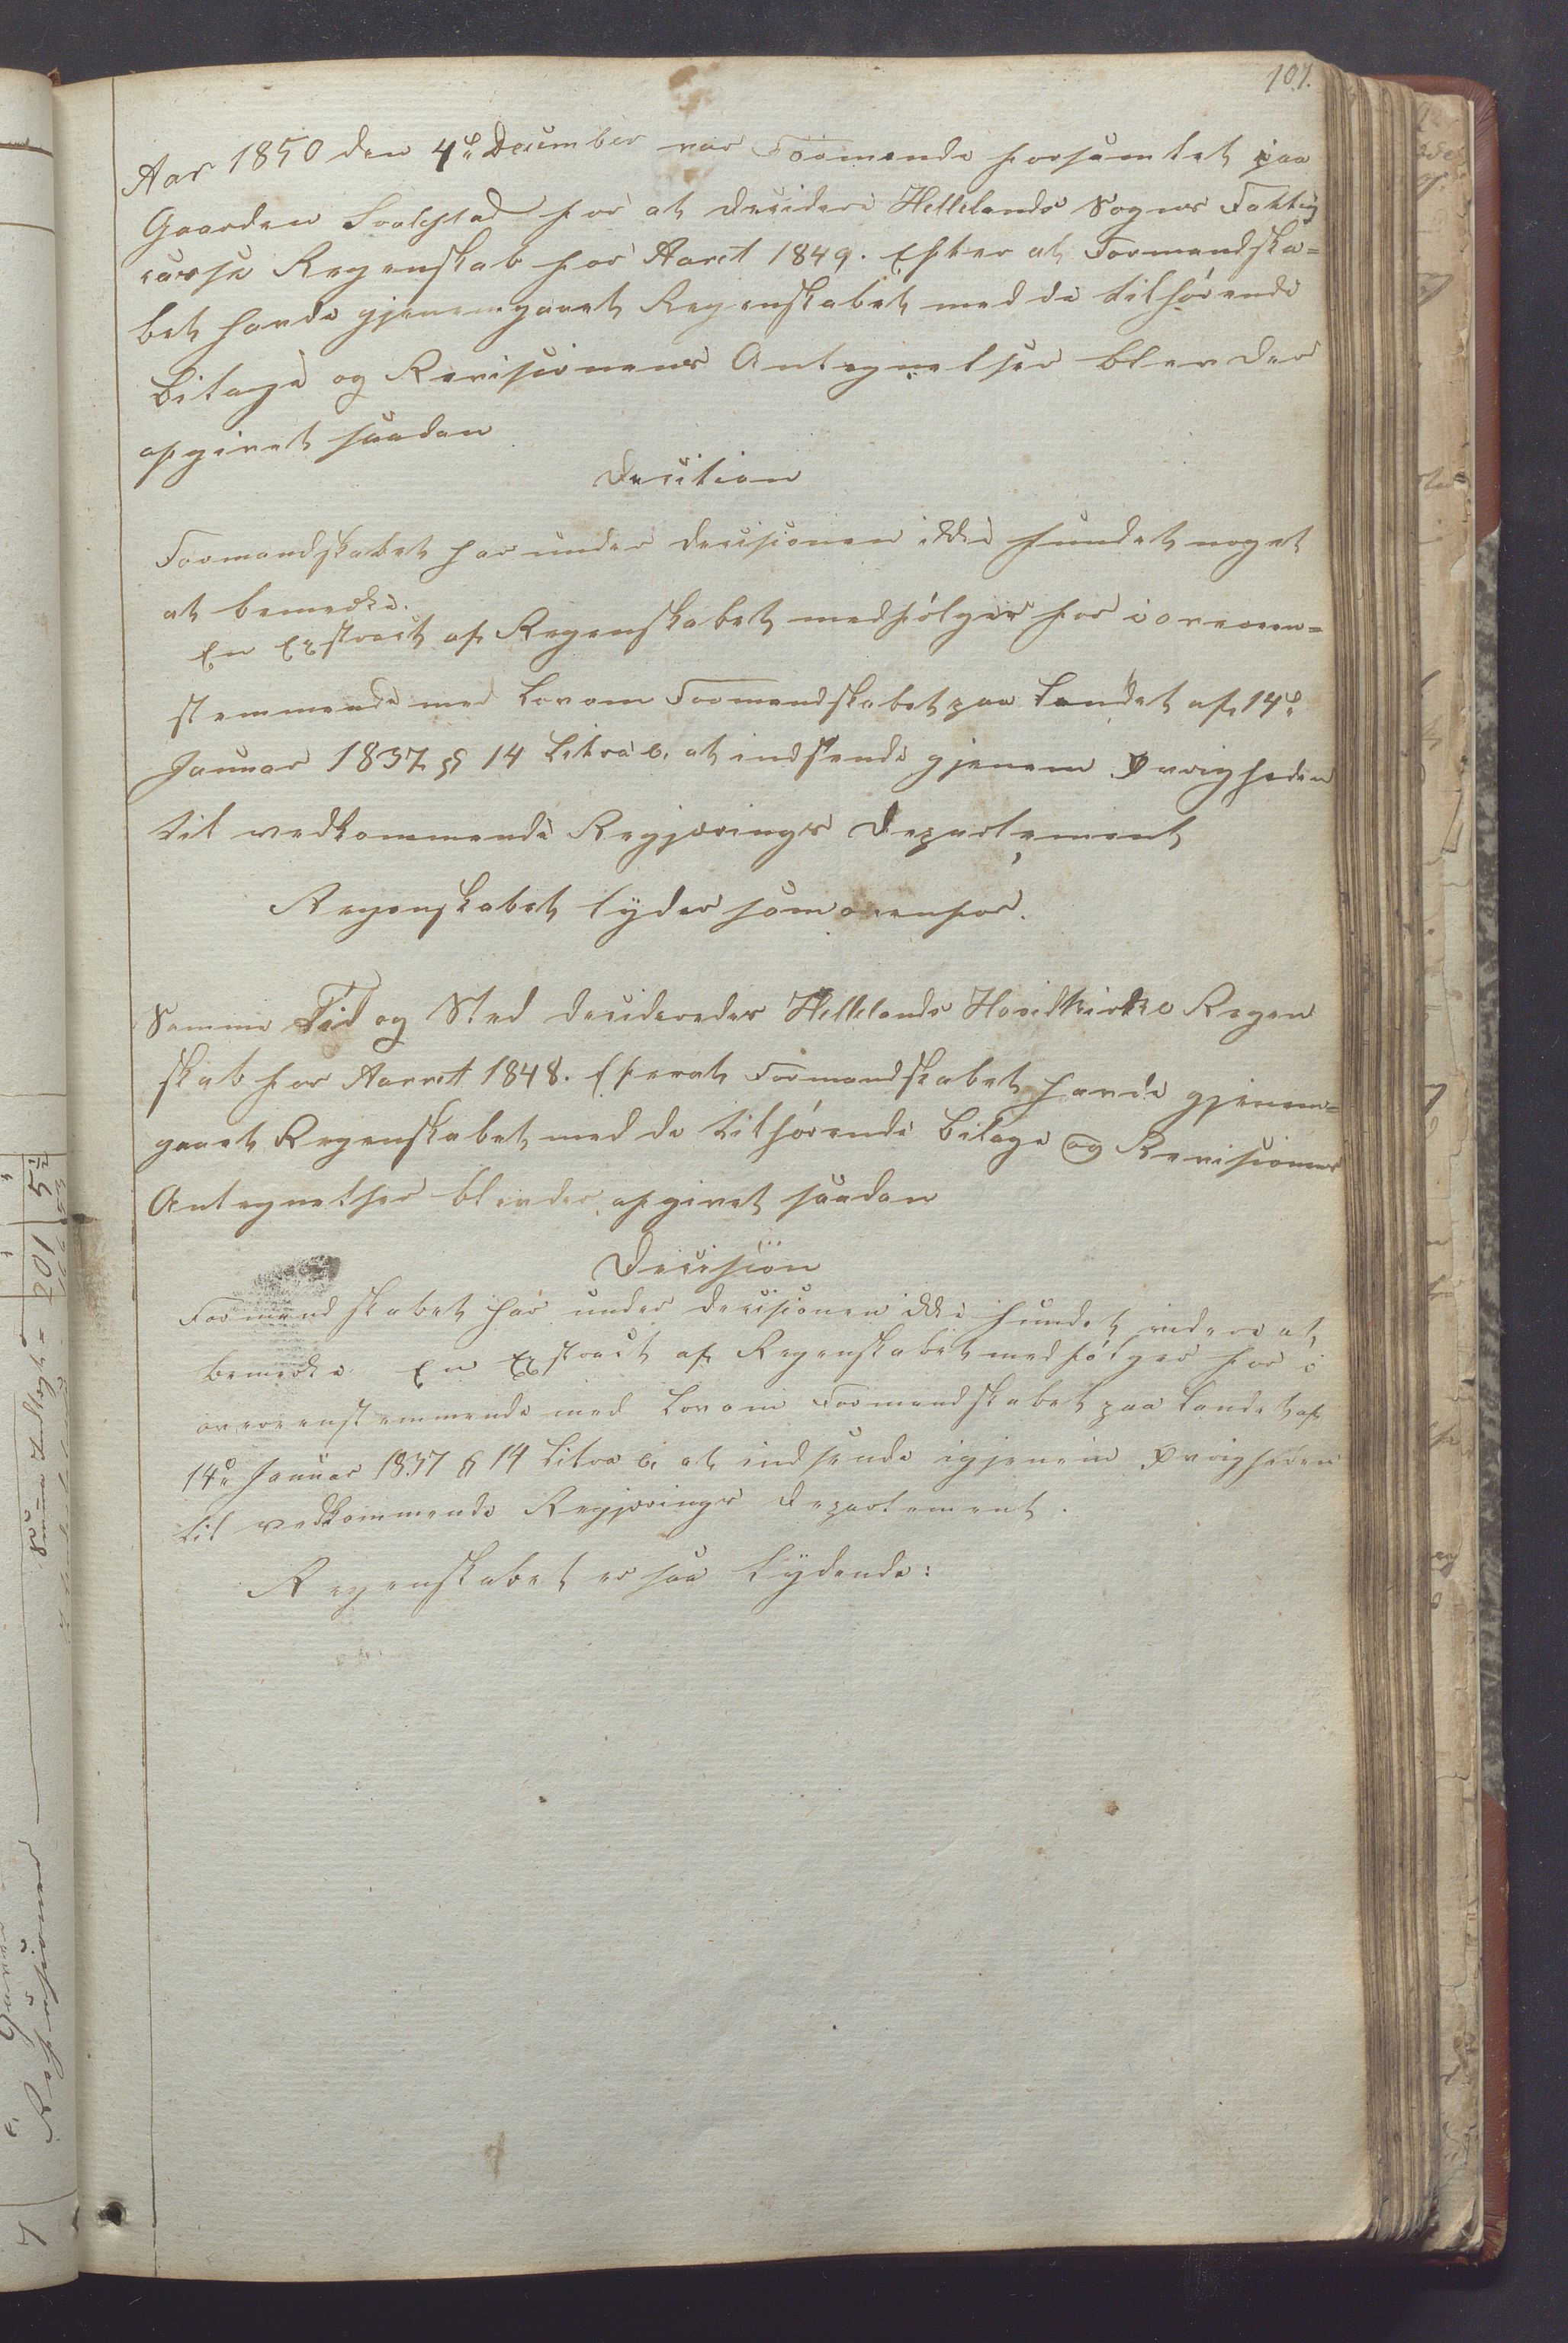 107.
Aar 1850 den 4de December var Formende forsamlet paa
Gaarden for at decidere Hellelands Sogns Fattig
casse Regenskab for Aaret 1849. Efter at Formandska=
bet havde gjenemgaaet Regenskabet med de tilhørende
Bilage og Revisionens Antegnelser blev der
afgivet saadan
Decition
Formandskabet har under Decisionen ikke fundet noget
at bemerke.
En Exstract af Regenskabet medfølger for i overeen=
stemmende med Lov om Formandskabet paa Landet af 14de
Januar 1837 § 14 Litra c. at indsende gjenem Øvrigheden
til vedkommende Regjerings Departement
Regenskabet lyder som ovenfor.
Samme Tid og Sted decideredes Hellelands Hovidkirke Regen
skab for Aarret 1848. Efterat Formandskabet havde gjenem=
gaaet Regenskabet med de tilhørende Bilage og Revisiones
Antegnelser blev der afgivet saadan
Decision
Formandskabet har under Decisionen ikke fundet videre at
bemerke En Exstract af Regenskabet medfølger for i
overeenstemmende med Lov om Formandskabet paa Landet af
14de Januar 1837 § 14 Litra c. at indsende igjenem Øvrigheden
til vedkommende Regjerings Departement.
Regenskabet er saa lydende: